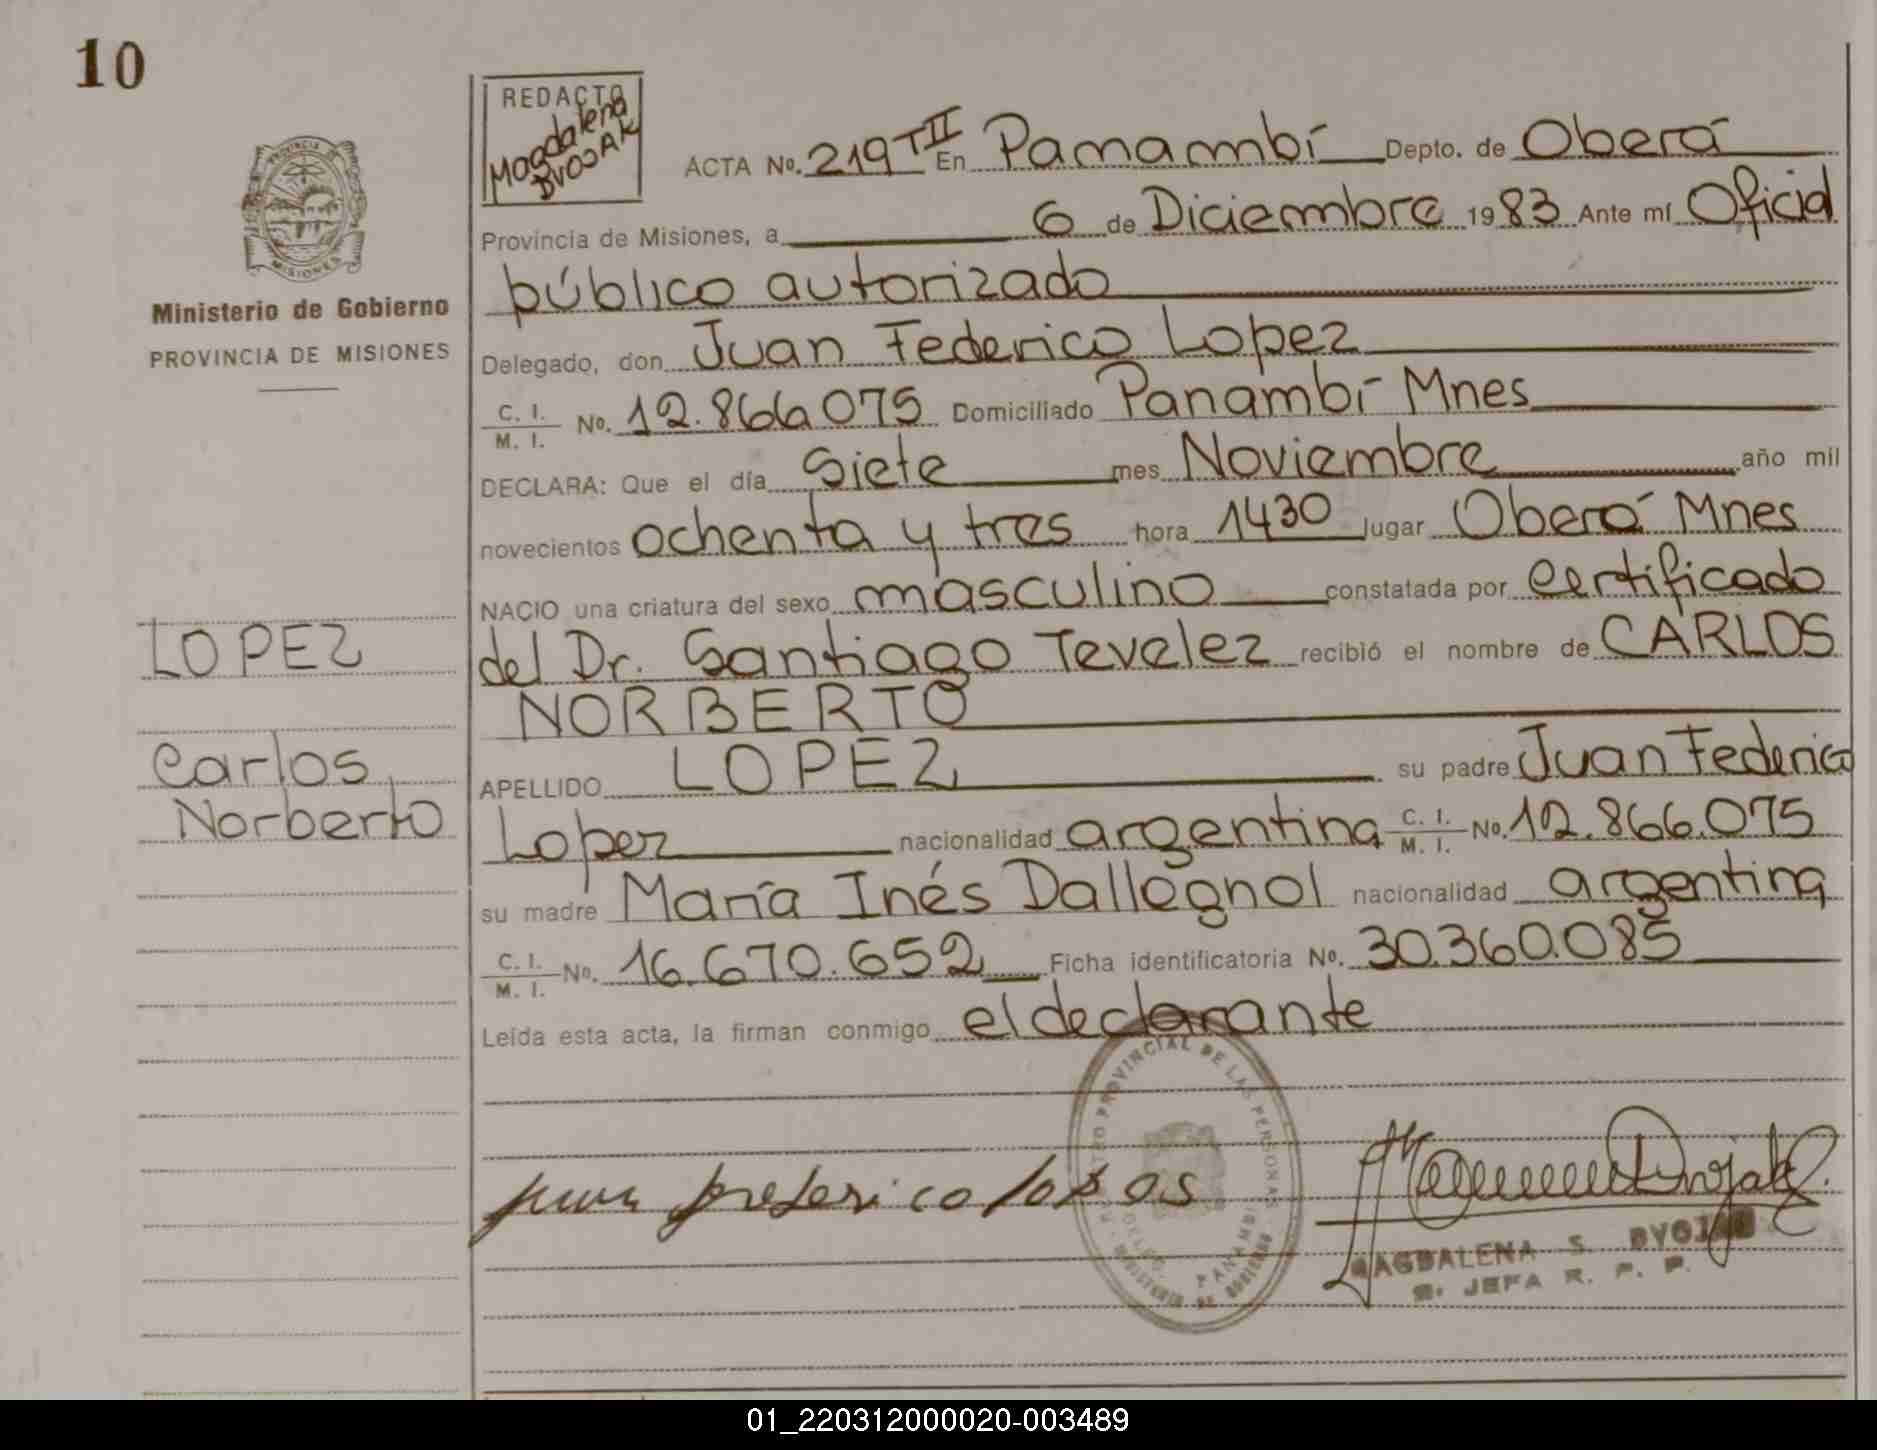 10
REDACTO
Magdalena
BVOJAK
ACTA No. 219 TII En Panambí Depto. de Oberá
Provincia de Misiones, a 6 de Diciembre 1983 Ante mí Oficial
público autorizado
Delegado, don Juan Federico Lopez
C. I.
M. I. No. 12.866075 Domiciliado Panambí Mnes
DECLARA: Que el día Siete mes Noviembre año mil
novecientos ochenta y tres hora 1430 lugar Oberá Mnes
NACIO una criatura del sexo masculino constatada por certificado
del Dr. Santiago Tevelez recibió el nombre de CARLOS
NORBERTO
APELLIDO LOPEZ su padre Juan Federico
Lopez nacionalidad argentina C. I. M. I. No. 12.866.075
su madre María Inés Dallegnol nacionalidad argentina
C. I.
M. I. No. 16.670.652 Ficha identificatoria No. 30.360.085
Leída esta acta, la firman conmigo el declarante
PROVINCIA DE
MISIONES
Ministerio de Gobierno
PROVINCIA DE MISIONES
LOPEZ
Carlos
Norberto
PROVINCIAL DE LAS PERSONAS
PANAMBI
MINISTERIO DE GOBIERNO
MAGDALENA S.
JEFA R. P. P.
01_220312000020-003489